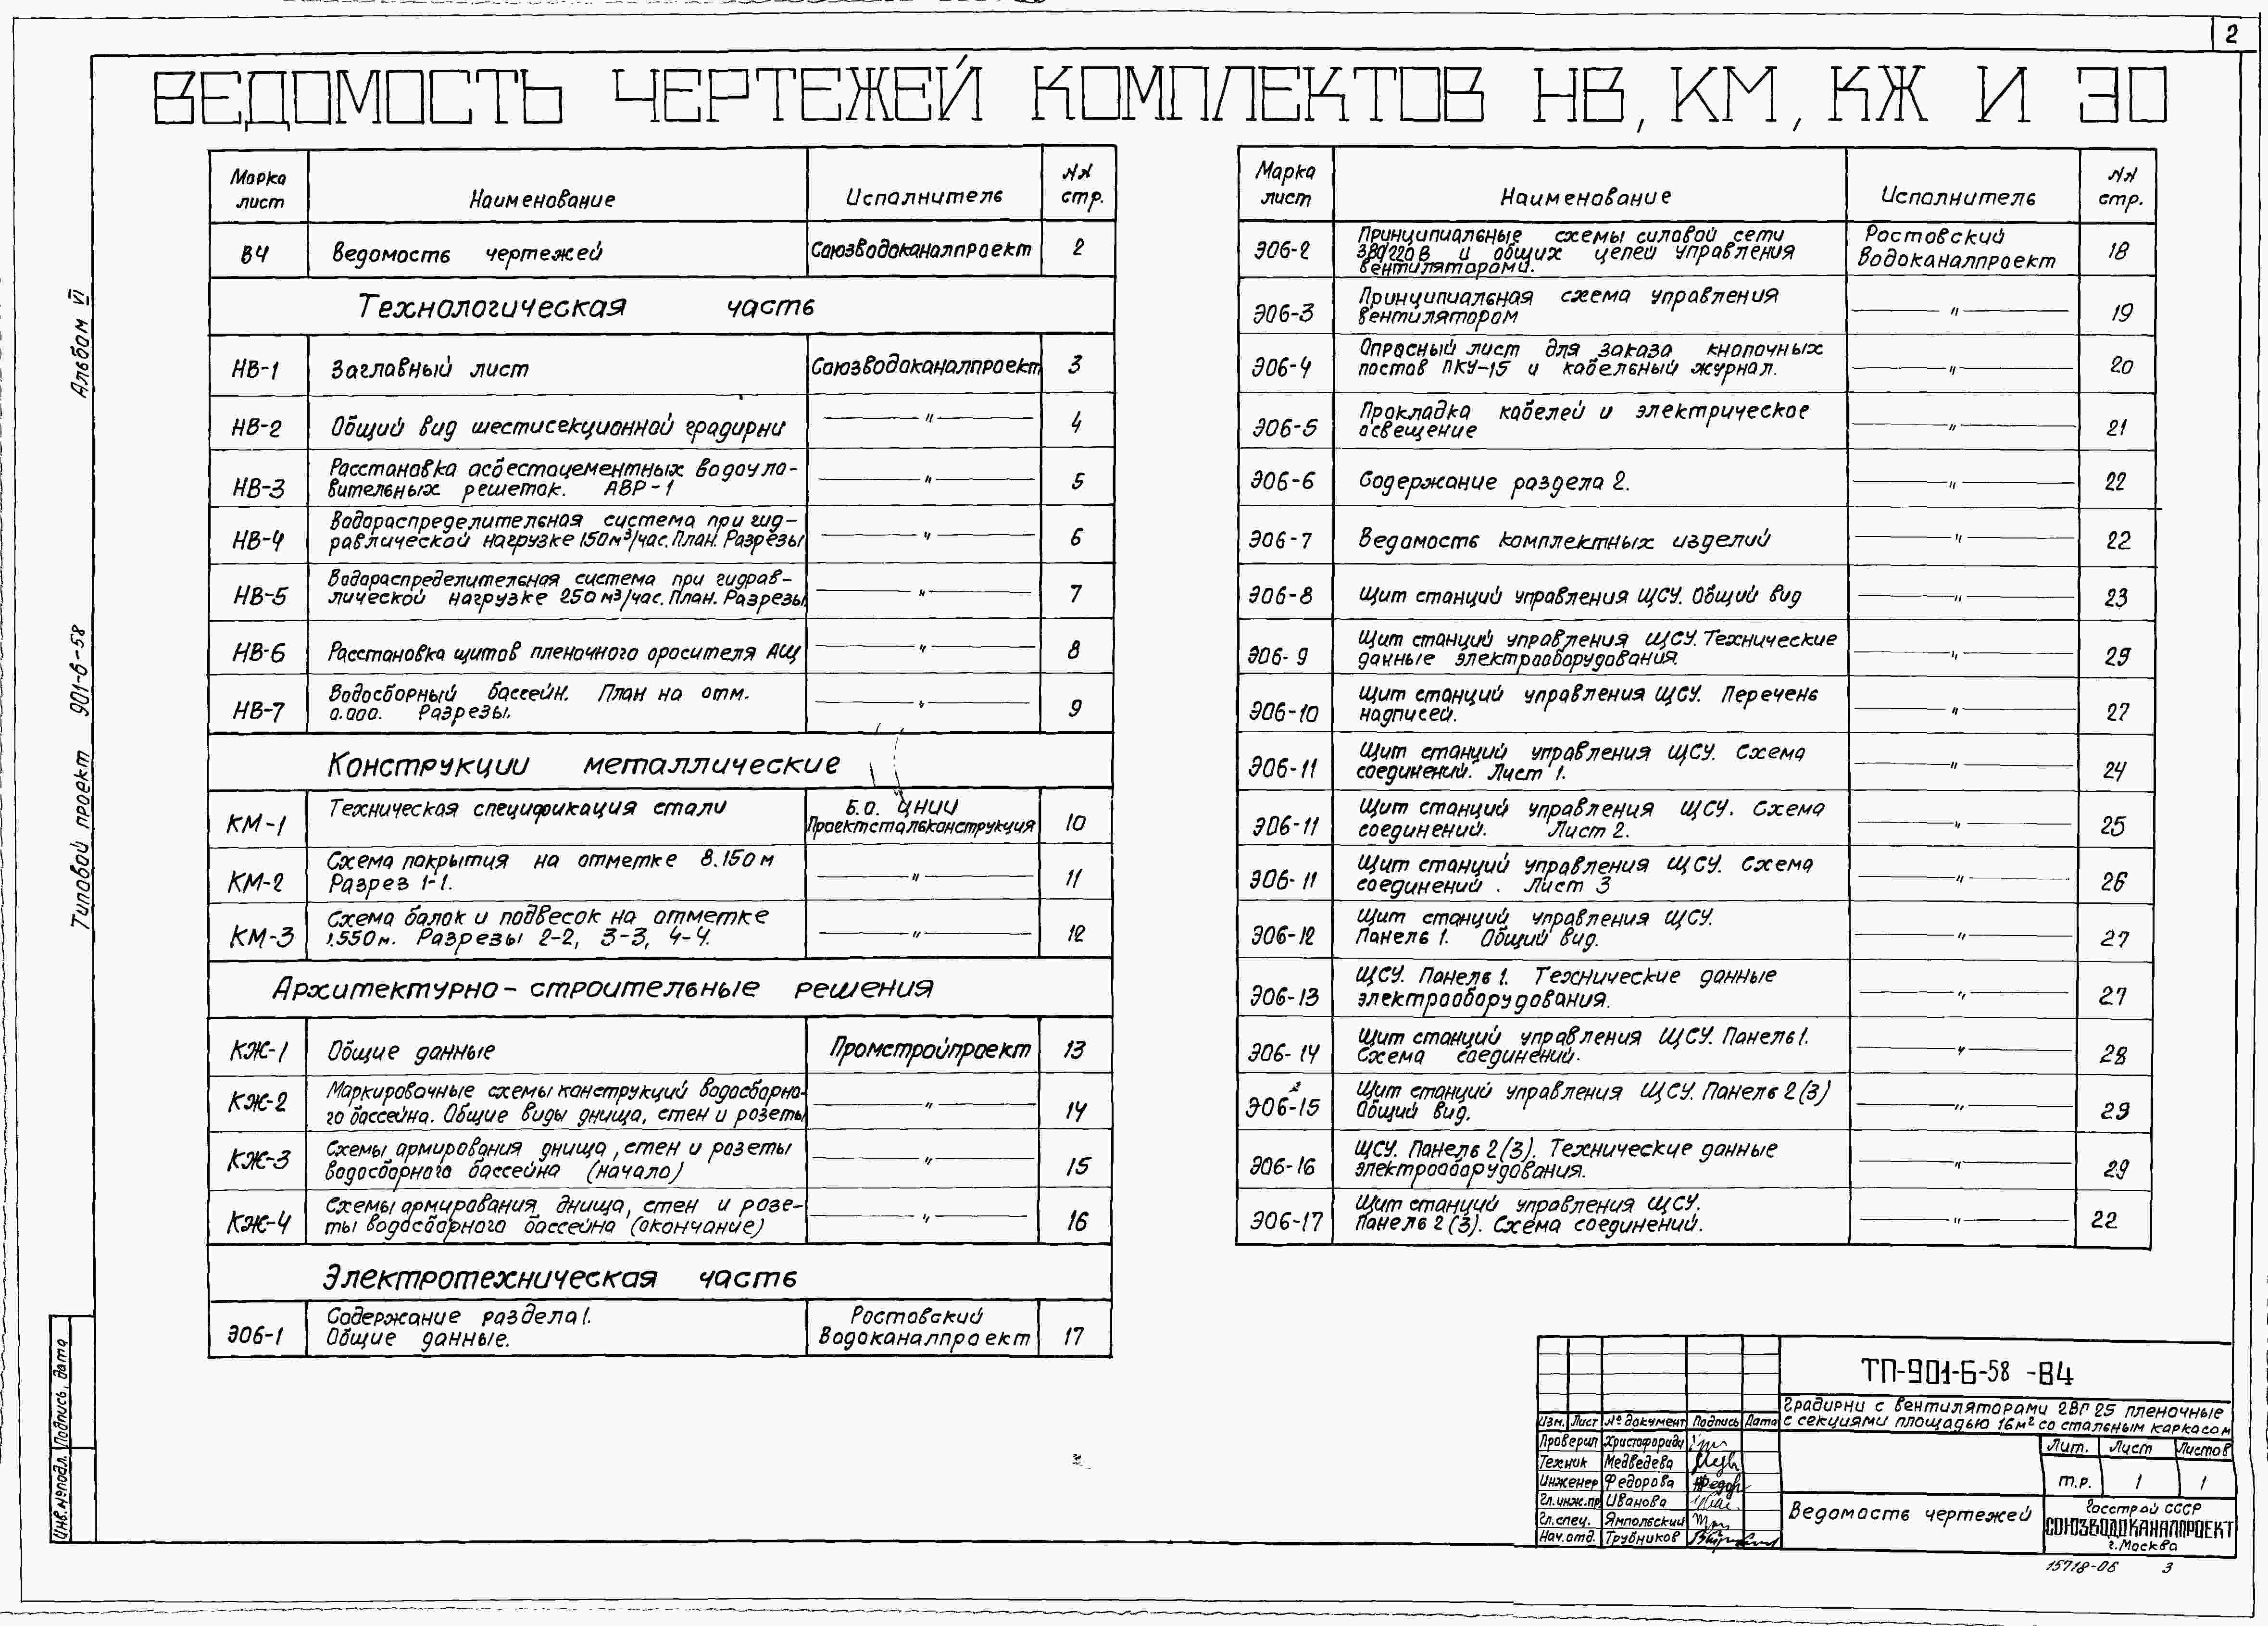 2
ВЕДОМОСТЬ ЧЕРТЕЖЕЙ КОМПЛЕКТОВ НВ, КМ, КЖ И ЭО
Альбом VI
Типовой проект 901-6-58
Инв.№подл. Подпись, дата
Марка лист Наименование Исполнитель NN стр.
ВЧ Ведомость чертежей Союзводоканалпроект 2
Технологическая часть
НВ-1 Заглавный лист Союзводоканалпроект 3
НВ-2 Общий вид шестисекционной градирни —"— 4
НВ-3 Расстановка асбестоцементных водоуло-
вительных решеток. АВР-1 —"— 5
НВ-4 Водораспределительная система при гид-
равлической нагрузке 150м³/час. План. Разрезы —"— 6
НВ-5 Водораспределительная система при гидрав-
лической нагрузке 250м³/час. План. Разрезы. —"— 7
НВ-6 Расстановка щитов пленочного оросителя АЩ —"— 8
НВ-7 Водосборный бассейн. План на отм.
0.000. Разрезы. —"— 9
Конструкции металлические
КМ-1 Техническая спецификация стали Б.О. ЦНИИ
Проектстальконструкция 10
КМ-2 Схема покрытия на отметке 8.150м
Разрез 1-1. —"— 11
КМ-3 Схема балок и подвесок на отметке
1.550м. Разрезы 2-2, 3-3, 4-4. —"— 12
Архитектурно-строительные решения
КЖ-1 Общие данные Промстройпроект 13
КЖ-2 Маркировочные схемы конструкций водосборно-
го бассейна. Общие виды днища, стен и розеты —"— 14
КЖ-3 Схемы армирования днища, стен и розеты
водосборного бассейна (начало) —"— 15
КЖ-4 Схемы армирования днища, стен и розе-
ты водосборного бассейна (окончание) —"— 16
Электротехническая часть
ЭО6-1 Содержание раздела 1.
Общие данные. Ростовский
Водоканалпроект 17
Марка лист Наименование Исполнитель NN стр.
ЭО6-2 Принципиальные схемы силовой сети
380/220В и общих цепей управления
вентиляторами. Ростовский
Водоканалпроект 18
ЭО6-3 Принципиальная схема управления
вентилятором —"— 19
ЭО6-4 Опросный лист для заказа кнопочных
постов ПКУ-15 и кабельный журнал. —"— 20
ЭО6-5 Прокладка кабелей и электрическое
освещение —"— 21
ЭО6-6 Содержание раздела 2. —"— 22
ЭО6-7 Ведомость комплектных изделий —"— 22
ЭО6-8 Щит станций управления ЩСУ. Общий вид —"— 23
ЭО6-9 Щит станций управления ЩСУ. Технические
данные электрооборудования. —"— 29
ЭО6-10 Щит станций управления ЩСУ. Перечень
надписей. —"— 27
ЭО6-11 Щит станций управления ЩСУ. Схема
соединений. Лист 1. —"— 24
ЭО6-11 Щит станций управления ЩСУ. Схема
соединений. Лист 2. —"— 25
ЭО6-11 Щит станций управления ЩСУ. Схема
соединений. Лист 3 —"— 26
ЭО6-12 Щит станций управления ЩСУ.
Панель 1. Общий вид. —"— 27
ЭО6-13 ЩСУ. Панель 1. Технические данные
электрооборудования. —"— 27
ЭО6-14 Щит станций управления ЩСУ. Панель 1.
Схема соединений. —"— 28
ЭО6-15 Щит станций управления ЩСУ. Панель 2(3)
Общий вид. —"— 29
ЭО6-16 ЩСУ. Панель 2(3). Технические данные
электрооборудования. —"— 29
ЭО6-17 Щит станций управления ЩСУ.
Панель 2(3). Схема соединений. —"— 22
ТП-901-6-58 -ВЧ
Градирни с вентиляторами 2ВГ25 пленочные
с секциями площадью 16м² со стальным каркасом
Изм. Лист № документ Подпись Дата
Проверил Христофориди
Техник Медведева
Инженер Федорова
Гл.инж.пр. Иванова
Гл.спец. Ямпольский
Нач.отд. Трубников
Лит. Лист Листов
т.р. 1 1
Ведомость чертежей
Госстрой СССР
СОЮЗВОДОКАНАЛПРОЕКТ
г.Москва
15718-06 3